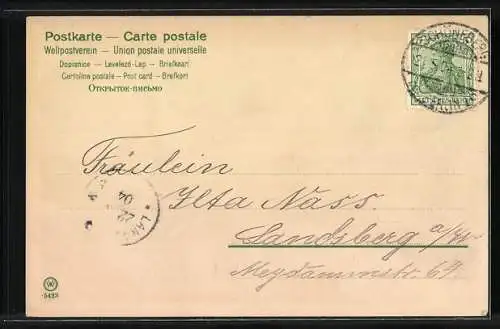 Postkarte — Carte postale
Weltpostverein — Union postale universelle
Dopisnice — Levelező-Lap — Briefkaart
Cartolina postale — Post card — Brefkort
Открытое письмо
SCHÖNEBERG
Fräulein
Ilta Nass.
Landsberg a/W
Meydammstr. 64
LAN
22
04
W
5423